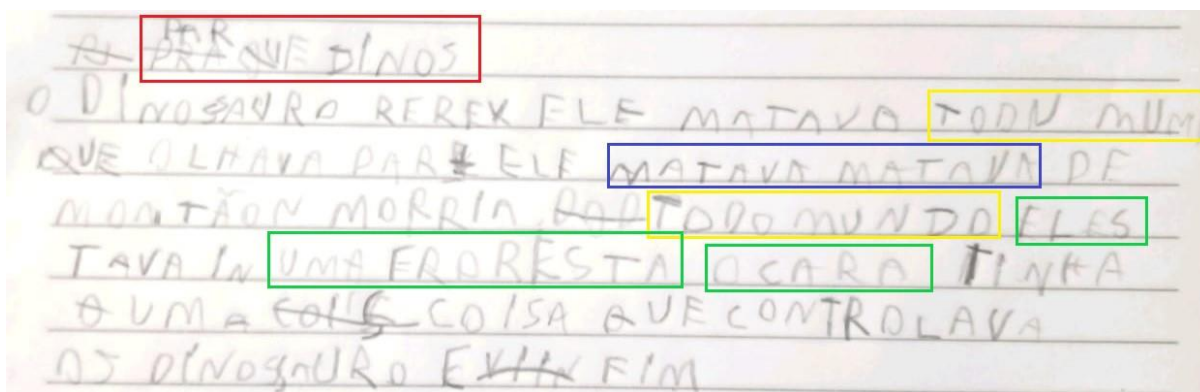 PAR
PRA QUE DINOS
O DINOSAURO REREX ELE MATAVA TODU MUM
QUE OLHAVA PARA ELE MATAVA MATAVA DE
MONTÃON MORRIA TODO MUNDO ELES
TAVA IN UMA FRORESTA O CARA TINHA
A UMA COISA QUE CONTROLAVA
OS DINOSAURO E FIM